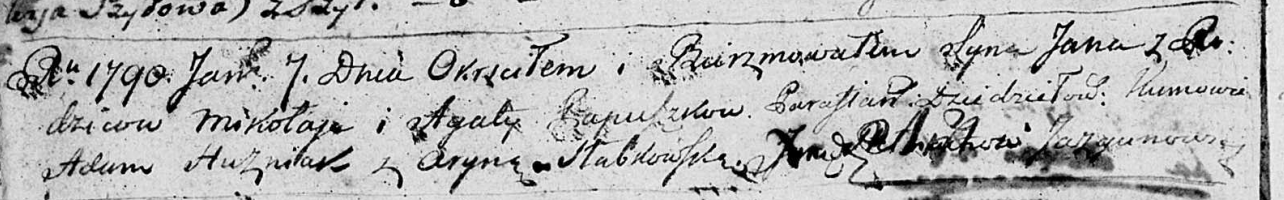 Szydowa) z Szył.
Ru 1790. Jan. 7. Dnia Okrzciłem i Bierzmowałem Syna Jana z Ro:
dzicow Mikołaja i Agaty Łapuszkow. Parafian. Dziedziełow: Kumowie
Adam Huzniak z Aryną Słabkowską.